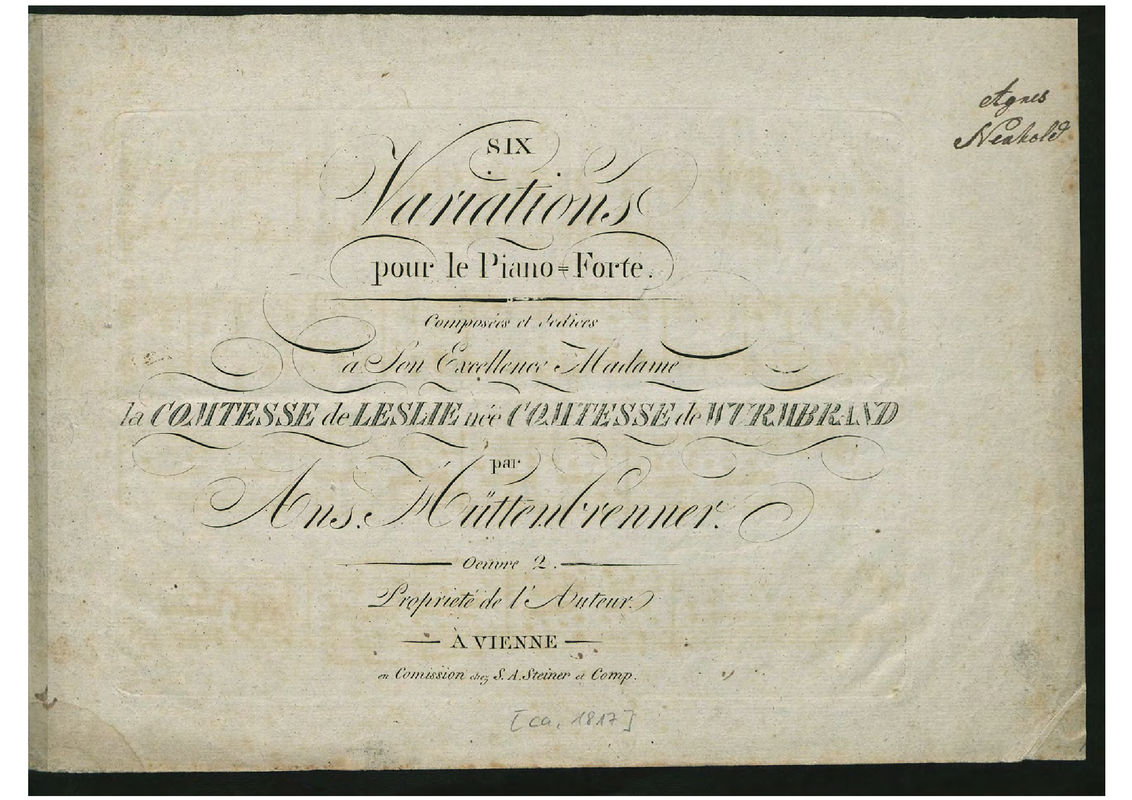 Agnes
Neuhold
SIX
Variations
pour le Piano=Forte.
Composées et dediées
à Son Excellence Madame
la COMTESSE de LESLIE née COMTESSE de WURMBRAND
par
Ans. Hüttenbrenner.
Oeuvre 2.
Proprieté de l'Auteur.
À VIENNE
en Comission chez S. A. Steiner et Comp.
[ca. 1817]